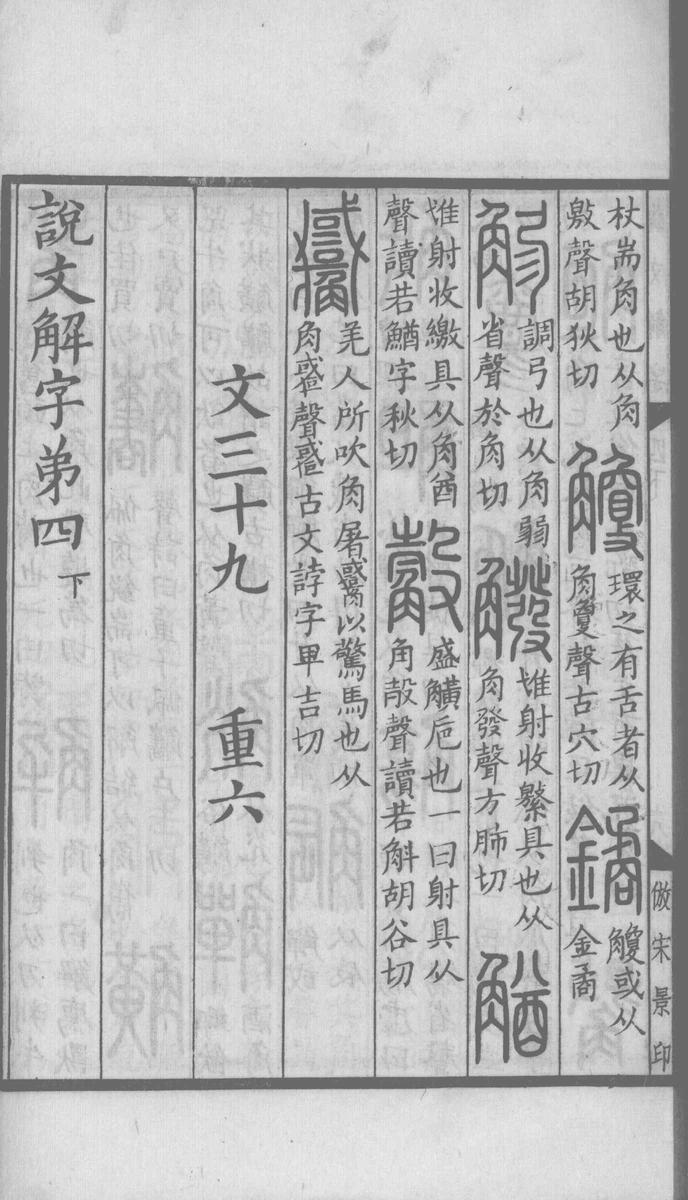 杖耑角也从角
敫聲胡狄切
觼環之有舌者从
角敻聲古穴切
鐍觼或从
金矞
觸調弓也从角弱
省聲於角切
𧤏隿射收繁具也从
角發聲方肺切
䲡
隿射收繳具从角酋
聲讀若鰌字秋切
觳盛觵卮也一曰射具从
角㱿聲讀若斛胡谷切
羌人所吹角屠𧥑以驚馬也从
角𧥑聲𧥑古文誖字卑吉切
文三十九 重六
說文解字弟四下
倣宋景印